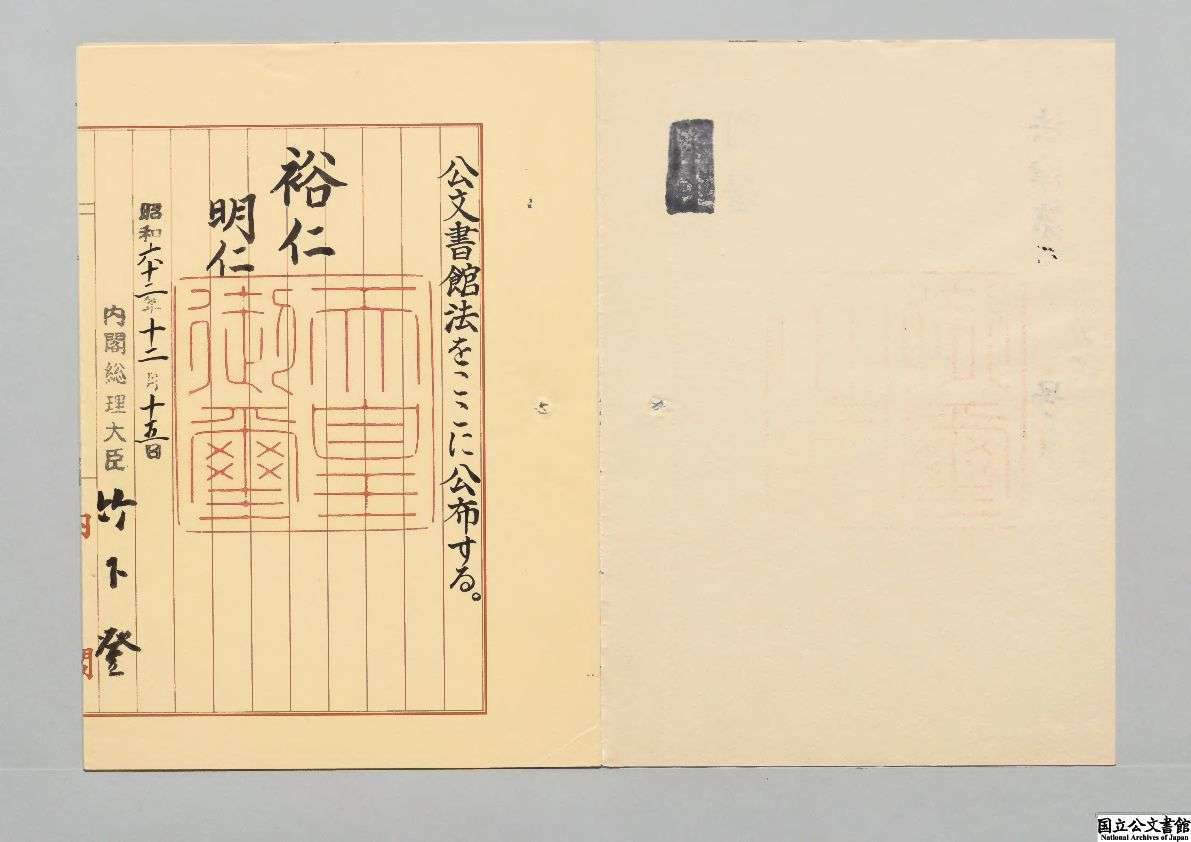 公文書館法をここに公布する。
裕仁
明仁
天皇
御璽
昭和六十二年十二月十五日
内閣総理大臣 竹下登
内閣
国立公文書館
National Archives of Japan